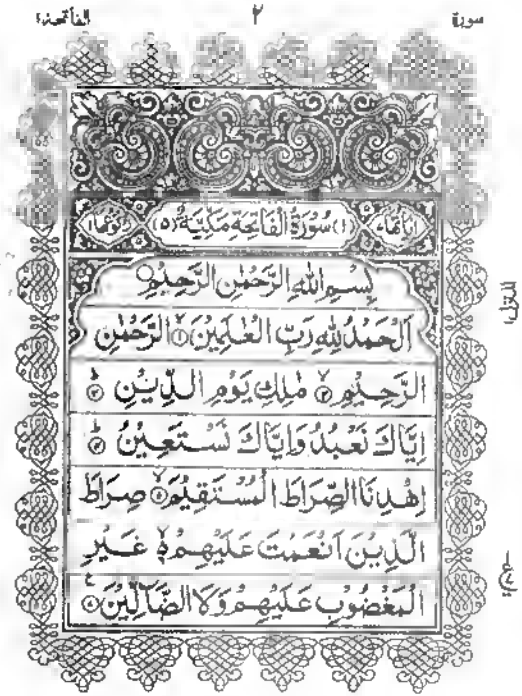 سورة ٢ الفاتحة ١
اٰیاتها ٧ (١) سُوْرَةُ الْفَاتِحَةِ مَكِّيَّةٌ (٥) رکوعها ١
بِسْمِ اللّٰهِ الرَّحْمٰنِ الرَّحِيْمِ
اَلْحَمْدُ لِلّٰهِ رَبِّ الْعٰلَمِيْنَ ۙ﴿١﴾ الرَّحْمٰنِ
الرَّحِيْمِ ۙ﴿٢﴾ مٰلِكِ يَوْمِ الدِّيْنِ ؕ﴿٣﴾
اِيَّاكَ نَعْبُدُ وَاِيَّاكَ نَسْتَعِيْنُ ؕ﴿٤﴾
اِهْدِنَا الصِّرَاطَ الْمُسْتَقِيْمَ ۙ﴿٥﴾ صِرَاطَ
الَّذِيْنَ اَنْعَمْتَ عَلَيْهِمْ ۙ﴿٦﴾ غَيْرِ
الْمَغْضُوْبِ عَلَيْهِمْ وَلَا الضَّآلِّيْنَ ﴿٧﴾